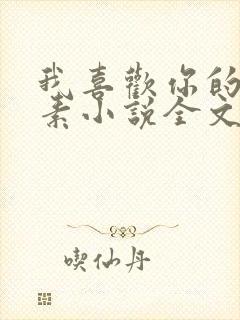 我喜歡你的
素小說全文
喫仙丹